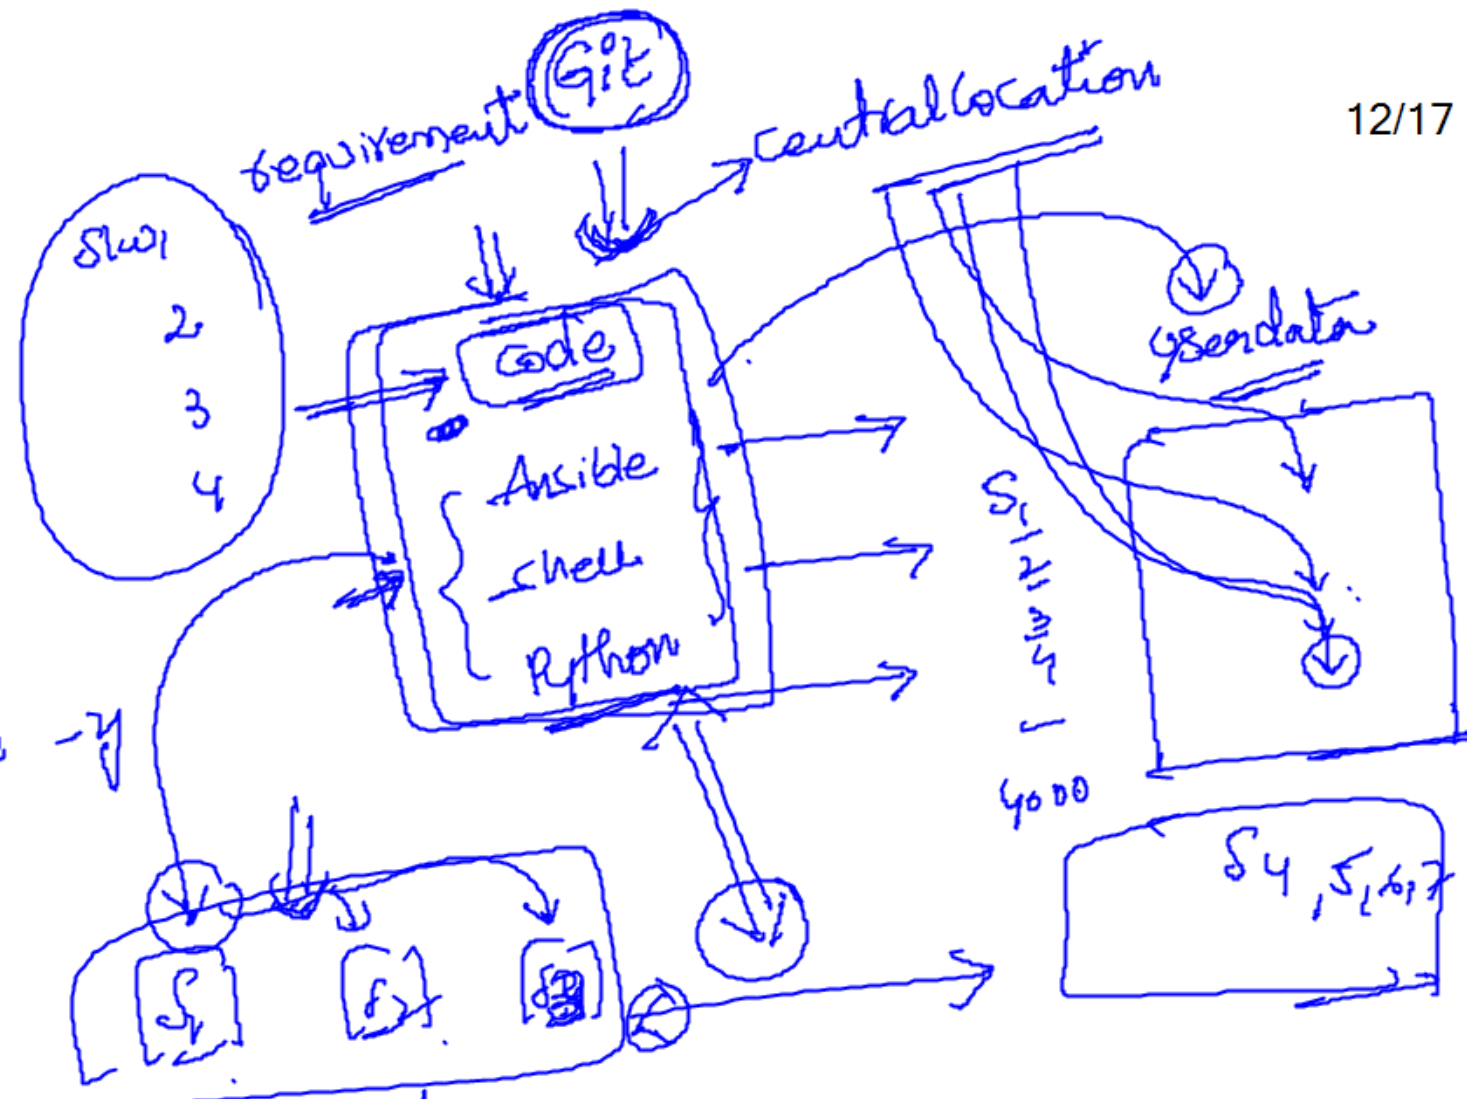 Git
requirement
central location
12/17
SW1
2
3
4
Code
Ansible
Shell
Python
userdata
S1
2
3
4
4000
-y
S4, 5, 6, 7
S1